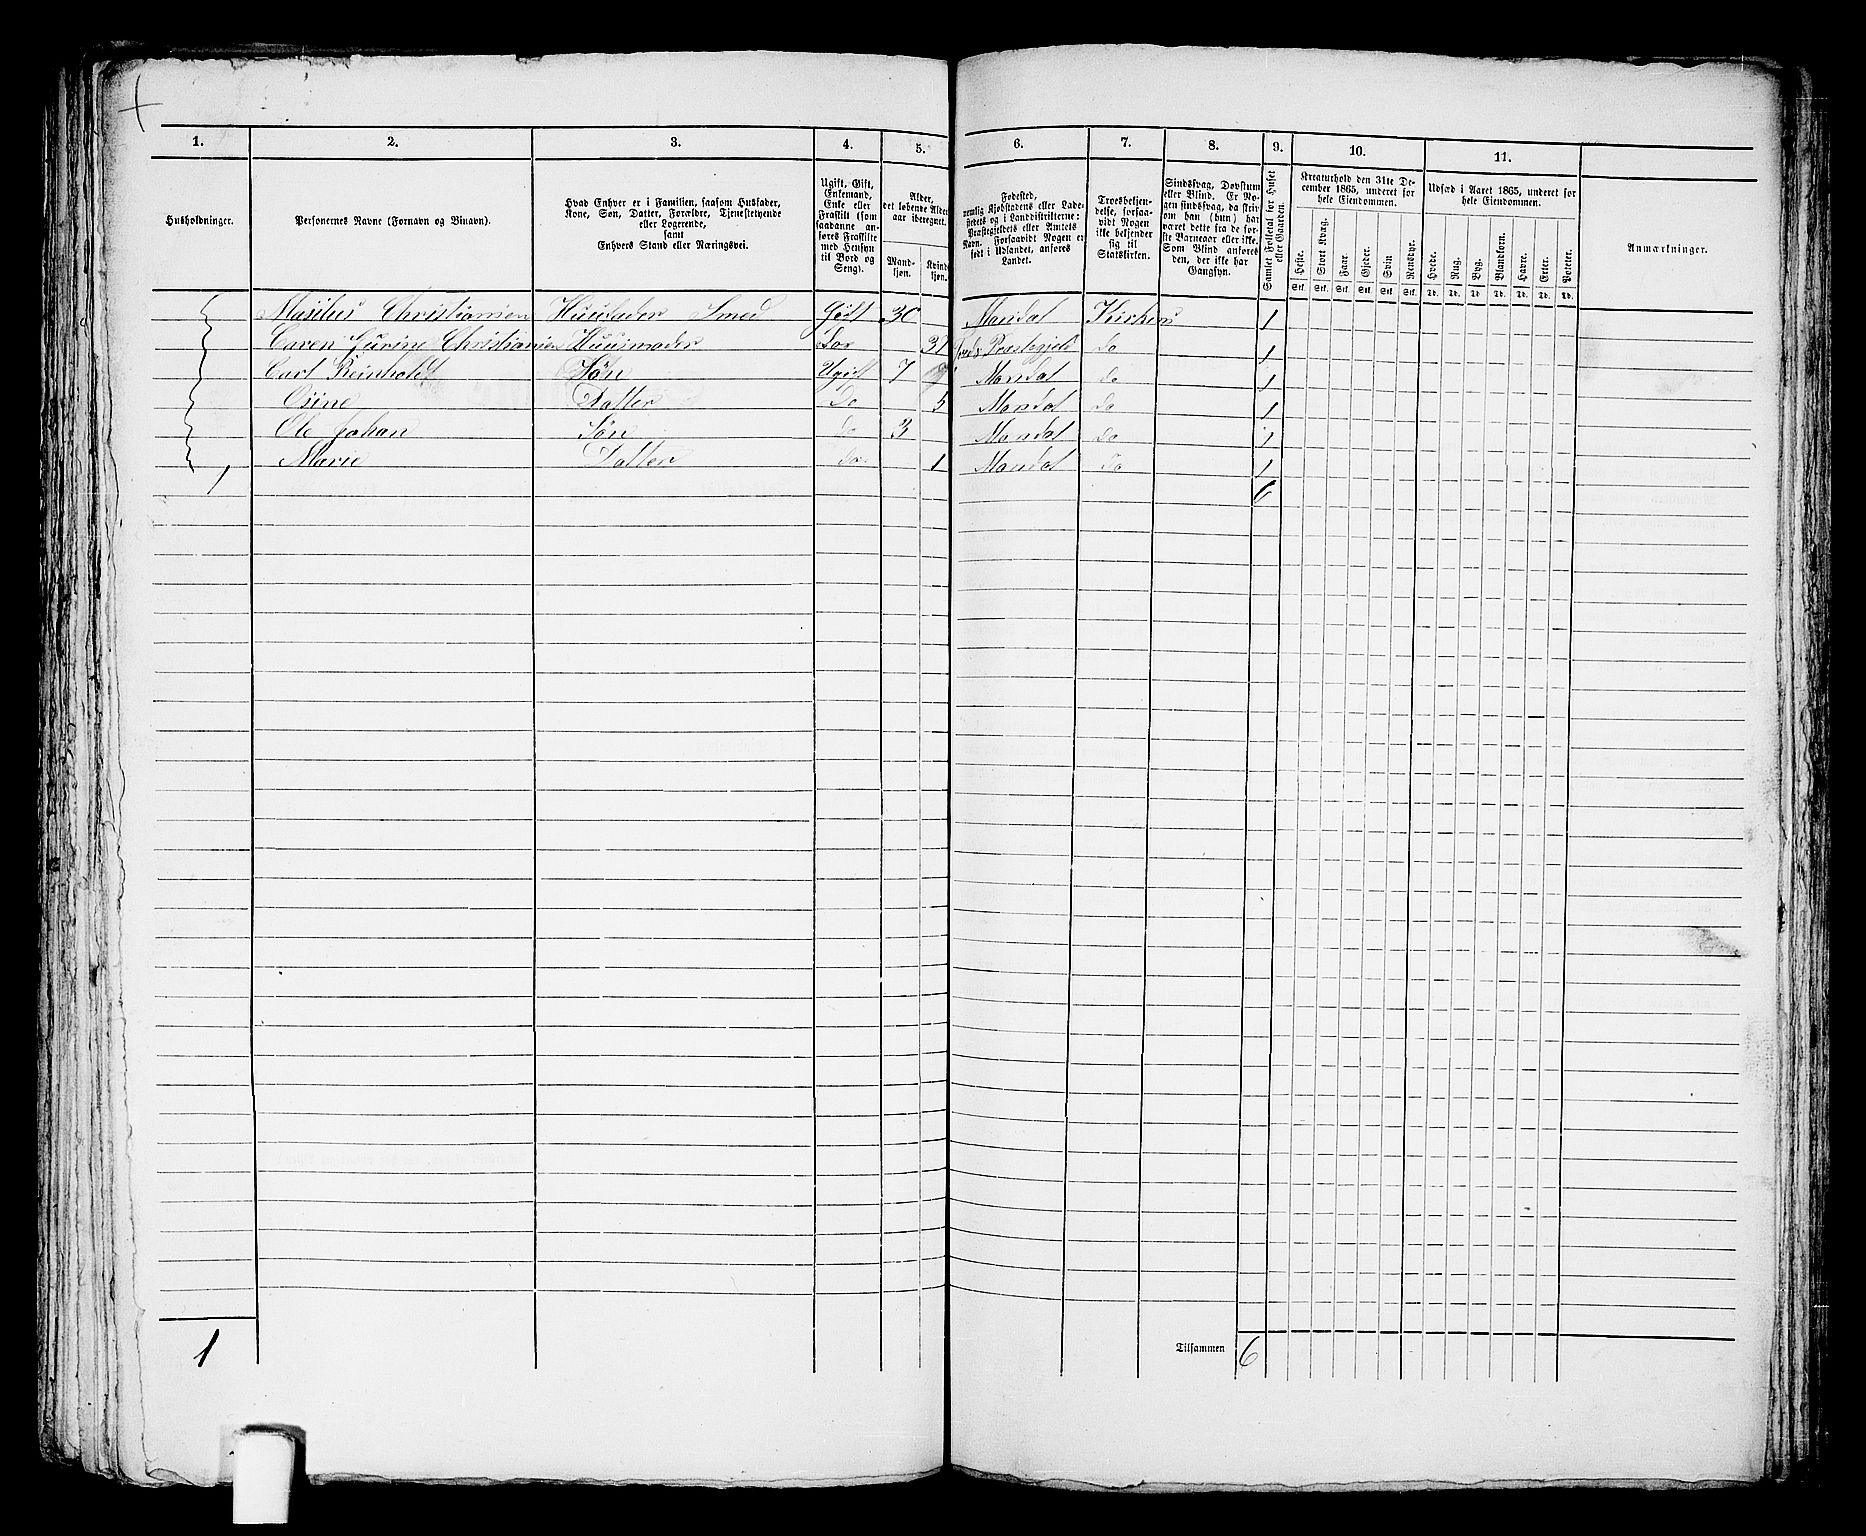 1. 2. 3. 4. 5. 6. 7. 8. 9. 10. 11.
Husholdninger.
Personernes Navne (Fornavn og Binavn).
Hvad Enhver er i Familien, saasom Husfader,
Kone, Søn, Datter, Forældre, Tjenestetyende
eller Logerende,
samt
Enhvers Stand eller Næringsvei.
Ugift, Gift,
Enkemand,
Enke eller
Fraskilt (som
saadanne an-
føres Fraskilte
med Hensyn
til Bord og
Seng).
Alder,
det løbende Alders-
aar iberegnet.
Mand-
kjøn.
Kvind-
kjøn.
Fødested,
nemlig Kjøbstadens eller Lade-
stedets og i Landdistrikterne:
Præstegjeldets eller Amtets
Navn. Forsaavidt Nogen er
født i Udlandet, anføres
Landet.
Troesbekjen-
delse, forsaa-
vidt Nogen
ikke bekjender
sig til
Statskirken.
Sindssvag, Døvstum
eller Blind. Er No-
gen sindssvag, da skri-
ves om han (hun) har
været dette fra de før-
ste Barneaar eller ikke.
Som Blind anføres
den, der ikke har
Gangsyn.
Samlet Folketal for Huset
eller Gaarden.
Kreaturhold den 31te De-
cember 1865, underet for
hele Eiendommen.
Heste. Stort Kvæg. Faar. Gjeder. Svin Rensdyr.
Stk. Stk. Stk. Stk. Stk. Stk.
Udsæd i Aaret 1865, underet for
hele Eiendommen.
Hvede. Rug. Byg. Blandkorn. Havre. Erter. Poteter.
Td. Td. Td. Td. Td. Td. Td.
Anmærkninger.
Christiansen Huusfader Smed Gift 30 Mandal Kirken 1
Caren Gurine Christiansen Huusmoder Do Præstegjeld do 1
Carl Reinholdt Søn Ugift 7 Mandal do 1
Osine Datter Do 5 Mandal do 1
Ole Johan Søn do 3 Mandal do 1
1 Marie Datter do 1 Mandal do 1
6
1 Tilsammen 6